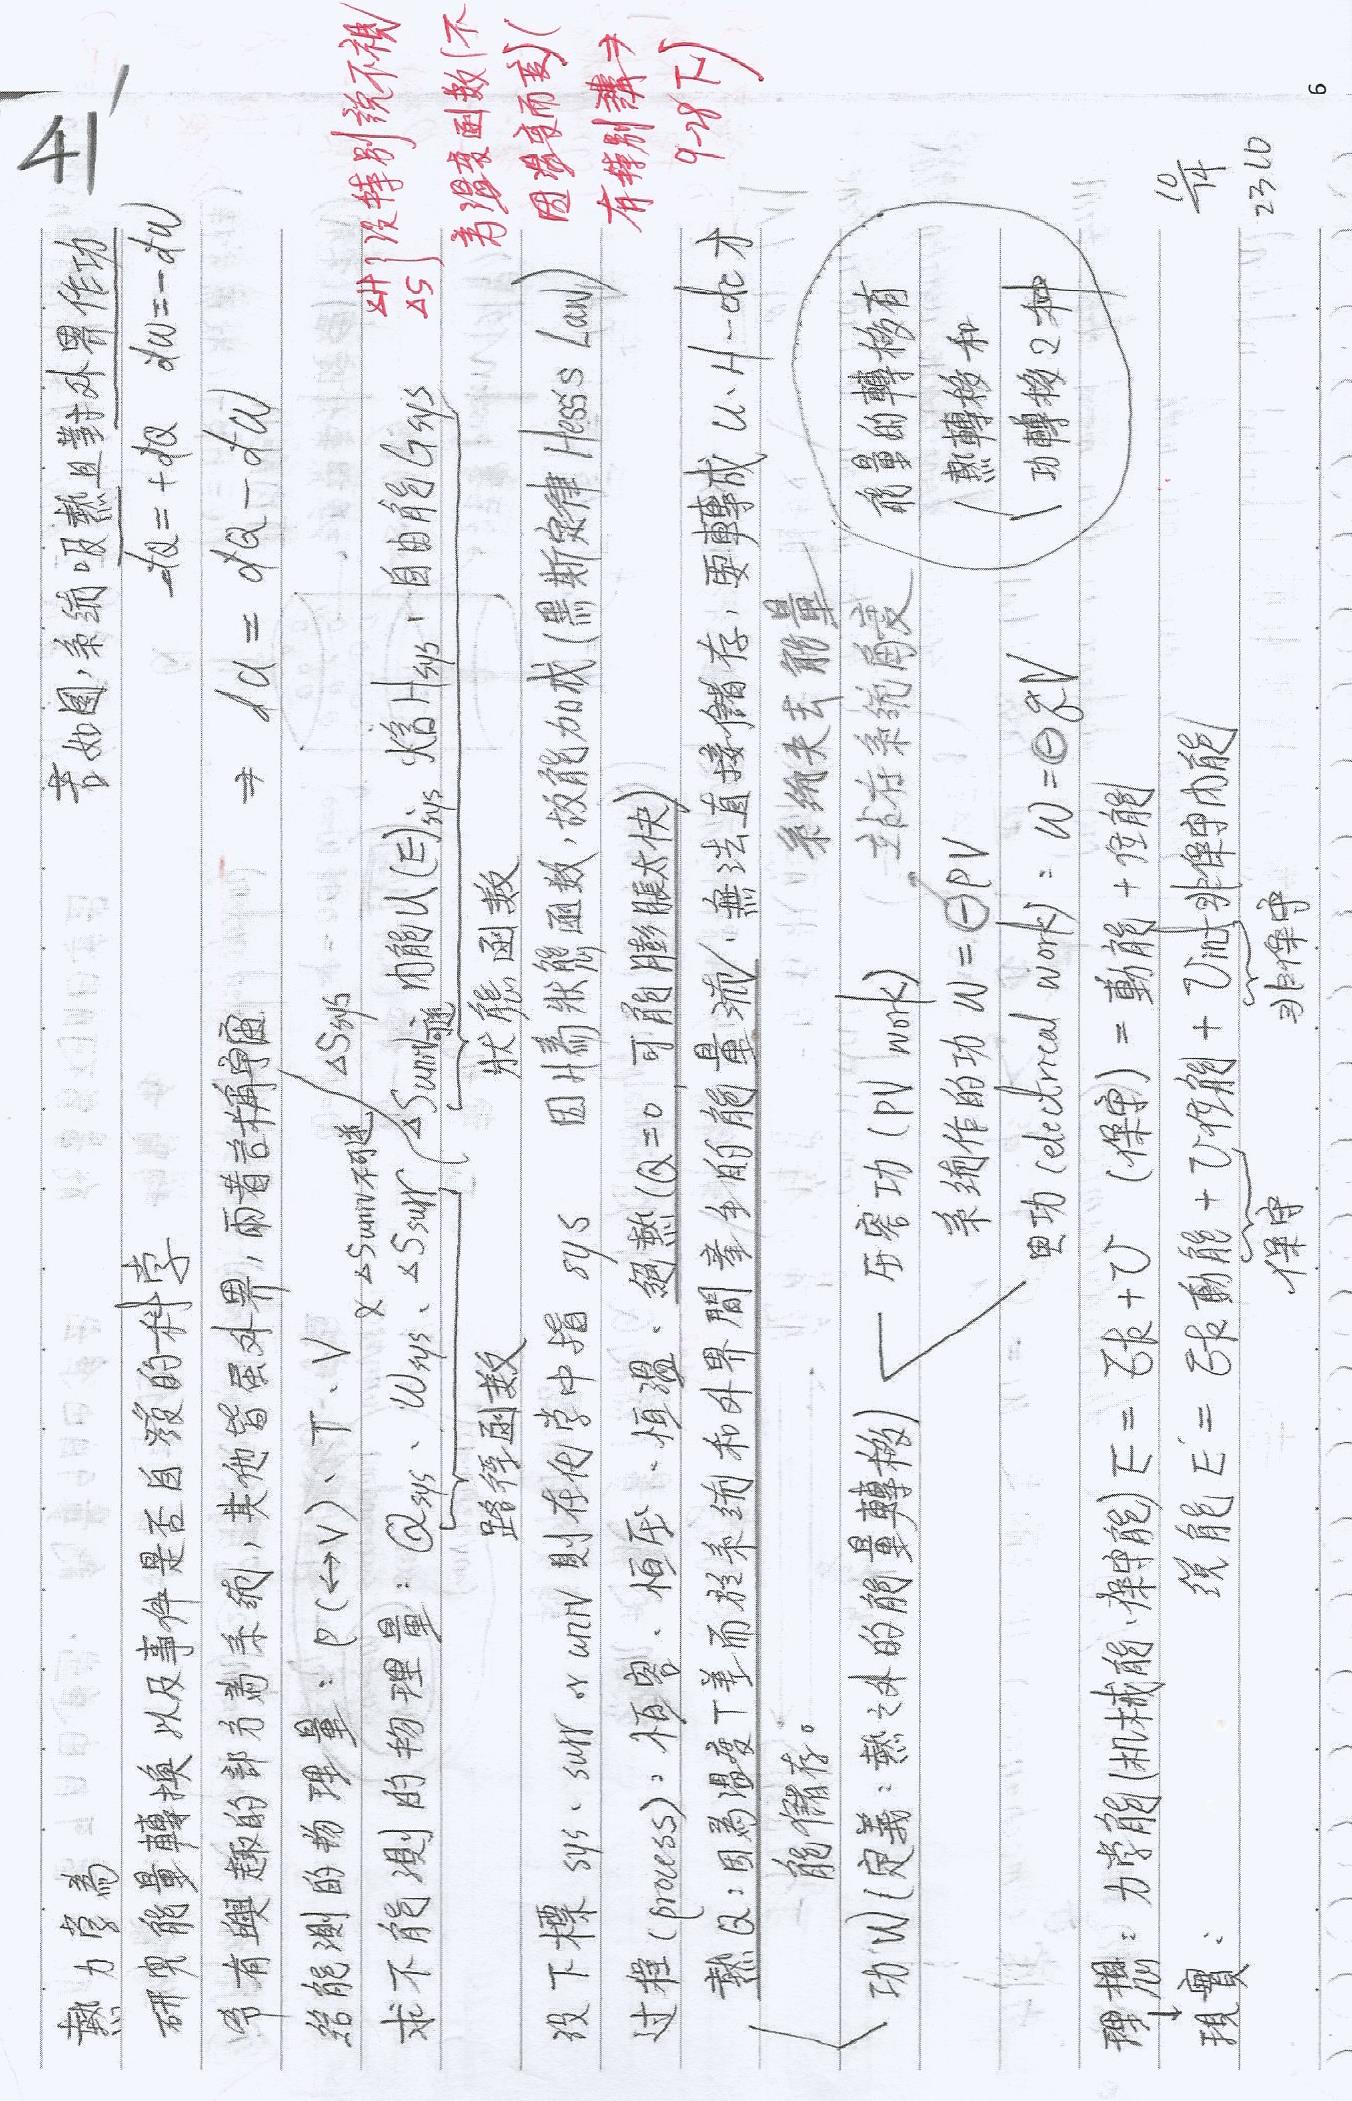 41
熱力學為
研究能量轉換以及事件是否自發的一科學
若如圖,系統吸熱且對外界作功
dQ = +dQ dW = -dW
令有興趣的部方為系統,其他皆為外界,兩者合稱宇宙
⇒ dU = dQ - dW
給能測的物理量: P(↔V)、T、V
求不能測的物理量: Qsys、Wsys、ΔSsurr
ΔSuniv不可逆
ΔSsys
ΔSuniv可逆
內能U(E)sys、焓Hsys、自由能Gsys
路徑函數
狀態函數
ΔH
ΔS
沒特別說不視
為溫度函數(不
因溫度而變)(
有特別講⇒
9-28下)
沒下標 sys、surr or univ 則在化學中指 sys
因其為狀態函數,故能加成(黑斯定律 Hess's Law)
过程(process): 恒容、恒压、恒溫、絕熱(Q=0,可能膨脹太快)
熱Q:因為溫度T差而於系統和外界間產生的能量流,無法直接儲存,要轉成U、H…etc才
能儲存。
系統失去能量
(站在系統角度
功W(定義:熱之外的能量轉移)
压容功(PV work)
系統作的功 W = ⊖PV
電功(electrical work): W = ⊖qV
能量的轉移有
熱轉移和
功轉移2种
理想:力学能(机械能、保守能) E = Ek + U (保守) = 動能 + 位能
↓
現實:
總能 E' = Ek動能 + U位能 + Uint非保守內能
保守
非保守
10/14
2310
6